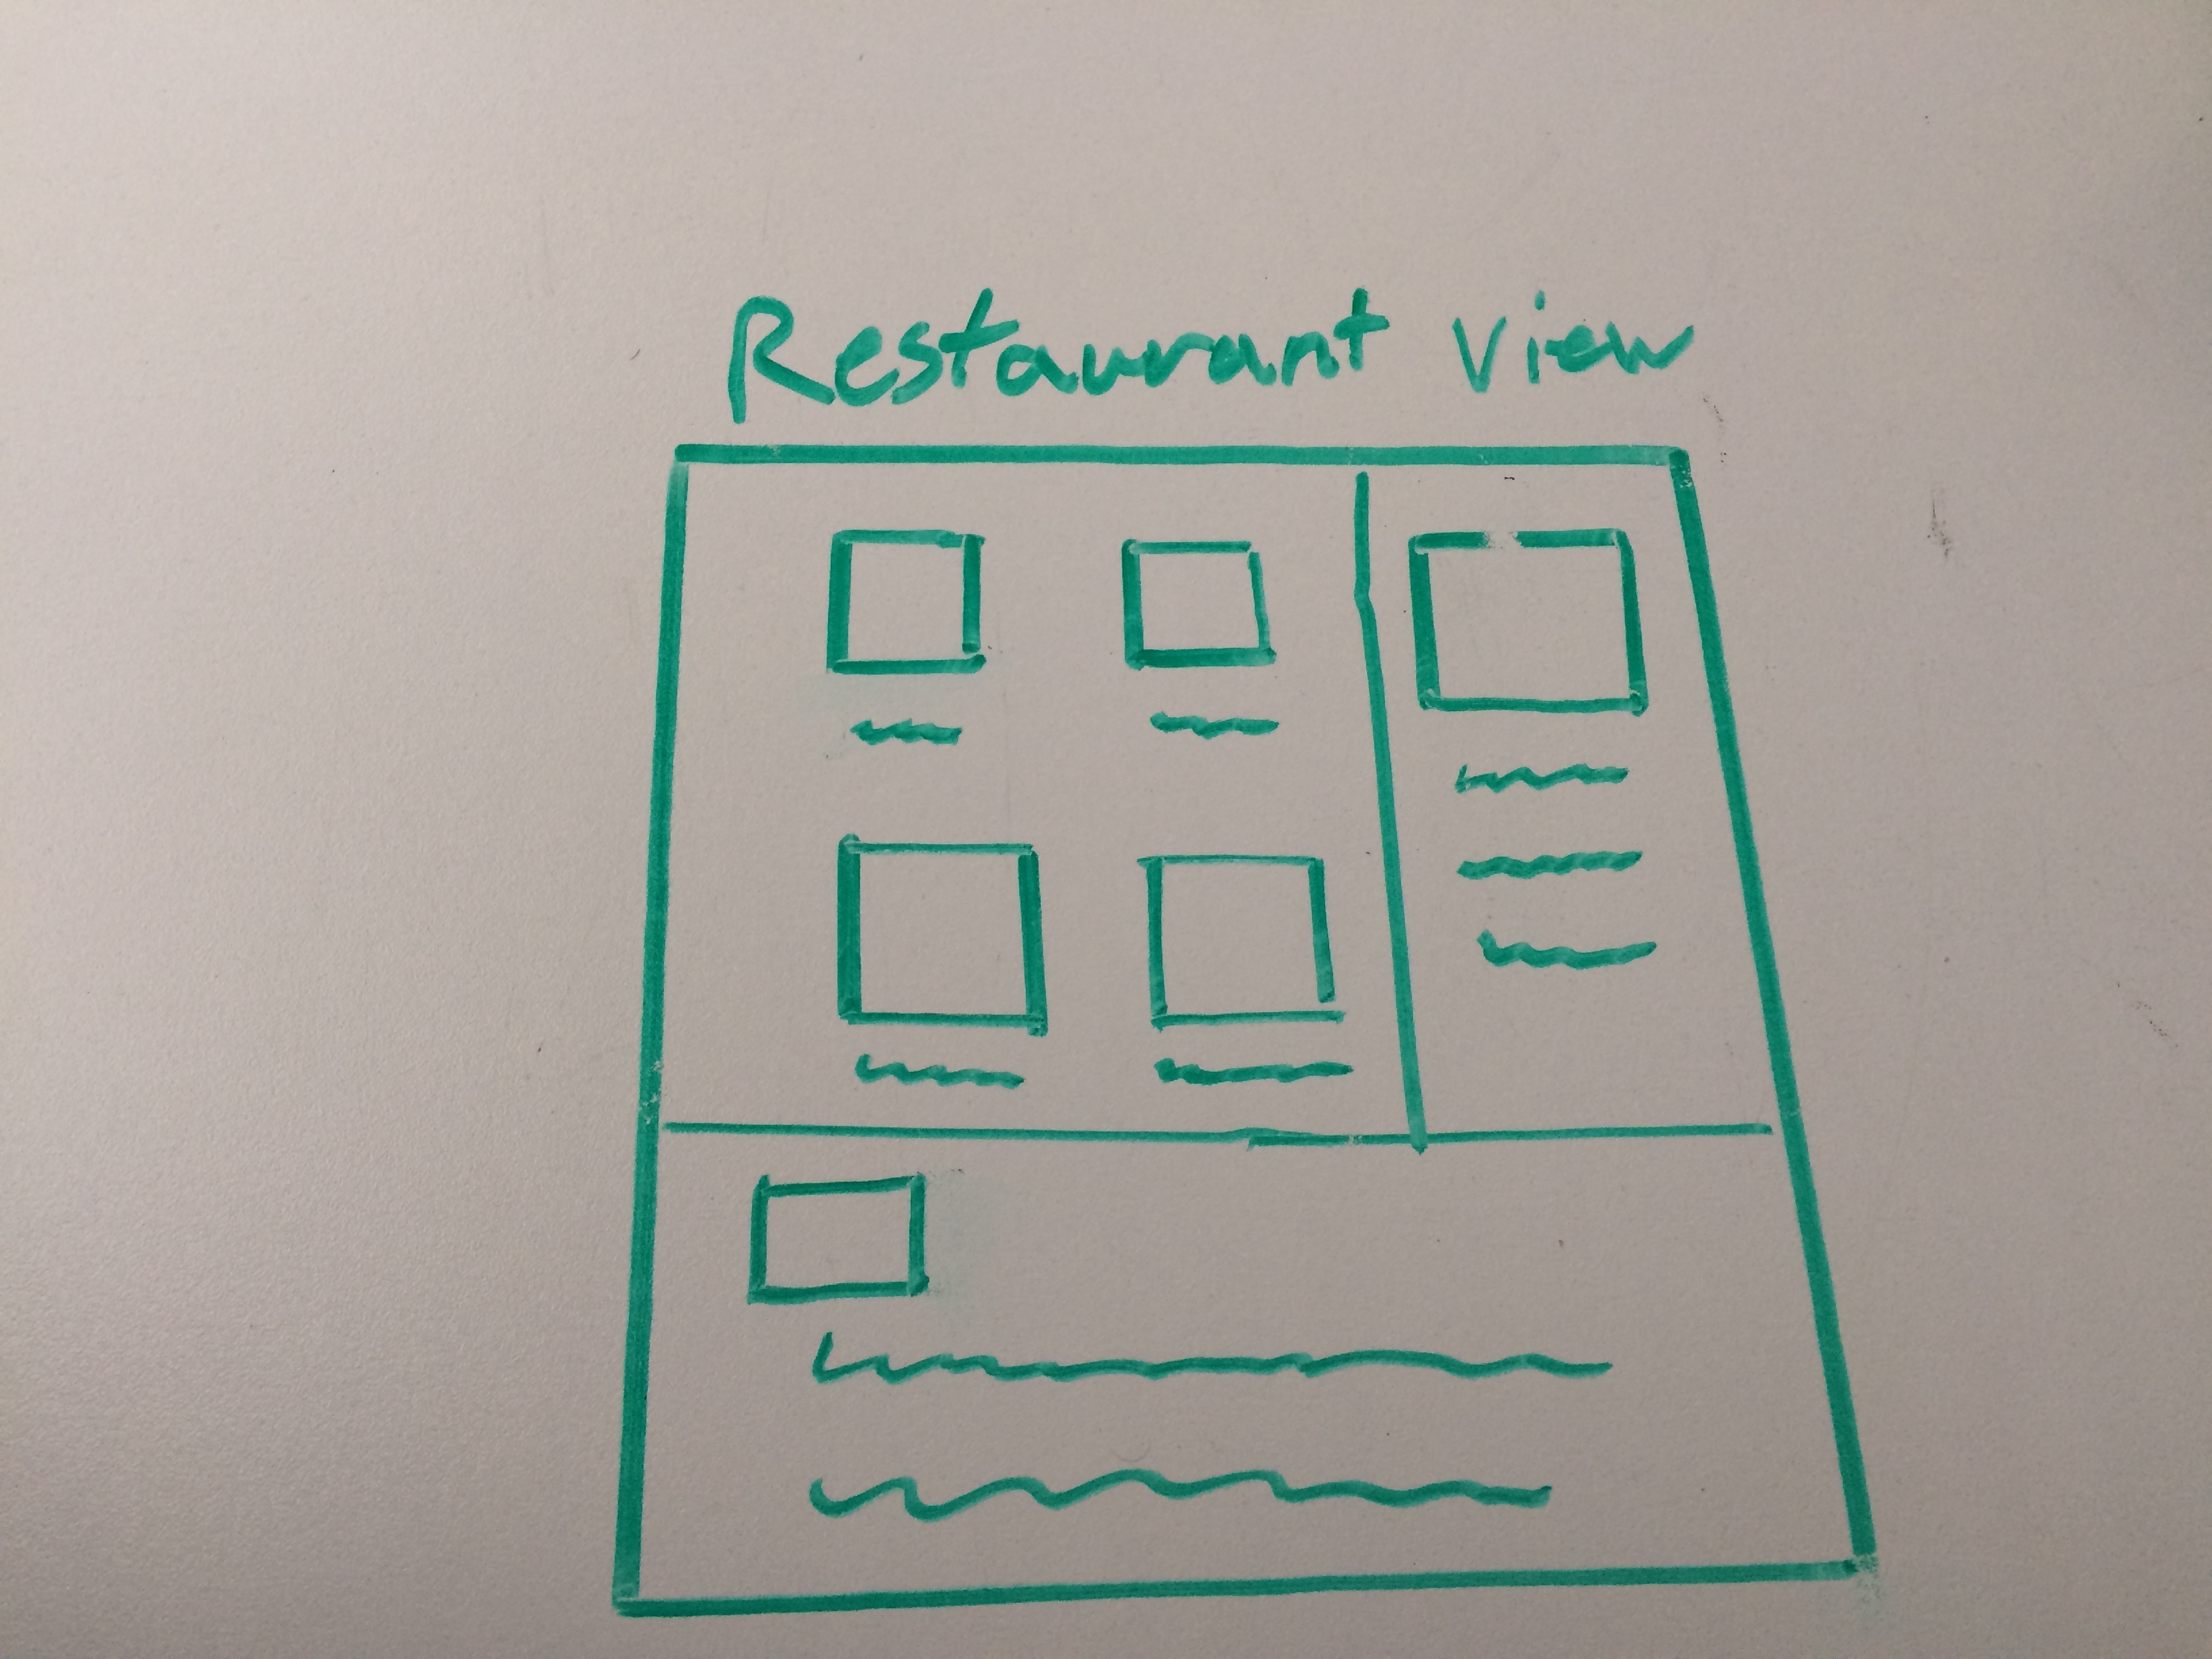 Restaurant View